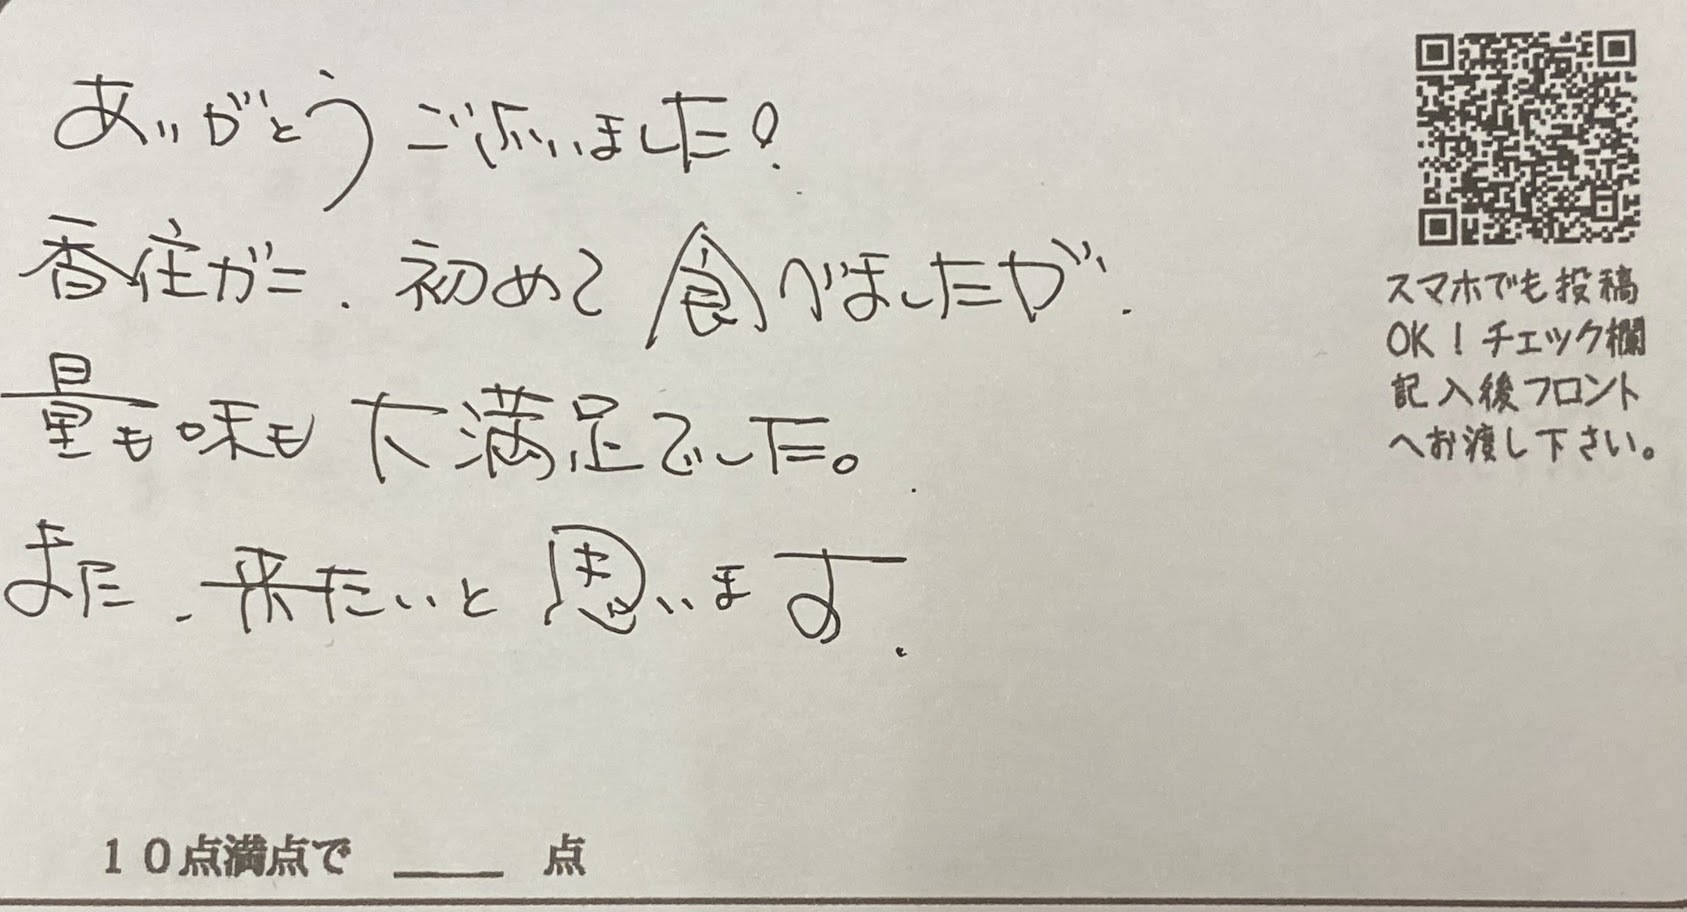 ありがとうございました!
香住ガニ、初めて食べましたが、
量も味も大満足でした。
また、来たいと思います。
スマホでも投稿
OK！チェック欄
記入後フロント
へお渡し下さい。
10点満点で ____ 点